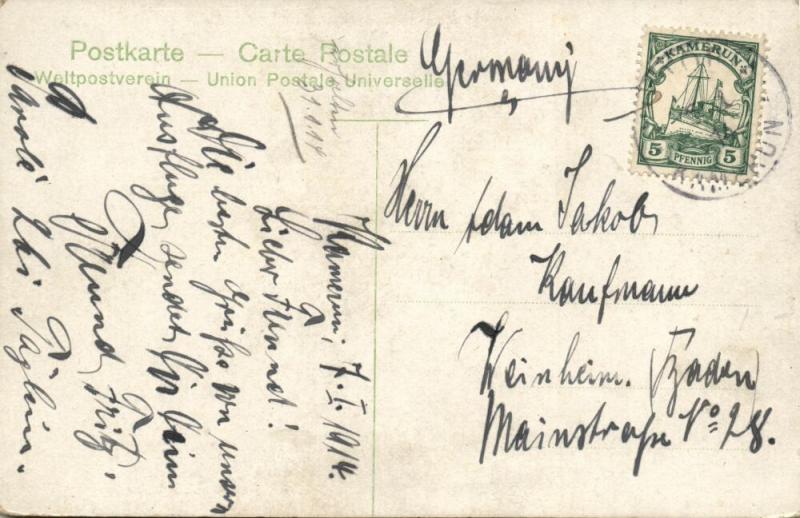 Postkarte — Carte Postale
Weltpostverein — Union Postale Universelle
Germany
KAMERUN
5 PFENNIG 5
Herrn Adam Jakob
Kaufmann
Weinheim. (Baden
Mainstraße No 28.
Kamerun, 7. I. 1914.
Lieber Freund!
Die besten Grüße von unserm
Ausfluge sendet Dir Dein
Freund Fritz.